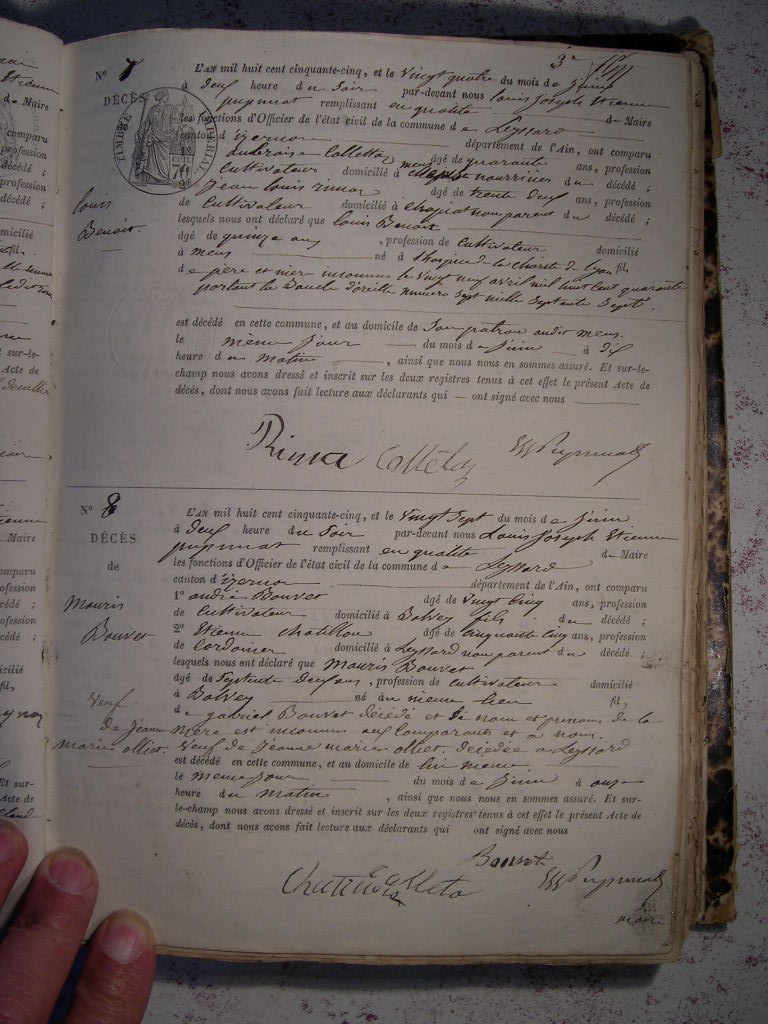 3e
N° 7
DÉCÈS
TIMBRE IMPÉRIAL
70
Louis
Benoit.
L'AN mil huit cent cinquante-cinq, et le vingt quatre du mois de juin
à deux heure du soir par-devant nous Louis Joseph Etienne
puynmat remplissant en qualité de Maire
les fonctions d'Officier de l'état civil de la commune de Leyssard
canton d'izernor département de l'Ain, ont comparu
1° Ambroise Colletta âgé de quarante ans, profession
cultivateur domicilié à mens nourricier du décédé ;
2° Jean Louis rima âgé de trente deux ans, profession
de cultivateur domicilié à non parent du décédé ;
lesquels nous ont déclaré que Louis Benoit
âgé de quinze ans, profession de cultivateur domicilié
à mens né à l'hospice de la charité de Lyon fil,
de père et mère inconnus le vingt neuf avril mil huit cent quarante
portant la Boucle d'oreille numéro sept mille septante sept.
est décédé en cette commune, et au domicile de son patron audit mens.
le même jour du mois de juin à dix
heure du matin, ainsi que nous nous en sommes assuré. Et sur-le-
champ nous avons dressé et inscrit sur les deux registres tenus à cet effet le présent Acte de
décès, dont nous avons fait lecture aux déclarants qui — ont signé avec nous
Rima Colletta
N° 8
DÉCÈS
de
Mauris
Bouvet
veuf
de Jeanne
marie olliet.
L'AN mil huit cent cinquante-cinq, et le vingt sept du mois de juin
à deux heure du soir par-devant nous Louis Joseph Etienne
puynmat remplissant en qualité de Maire
les fonctions d'Officier de l'état civil de la commune de Leyssard
canton d'izernor département de l'Ain, ont comparu
1° andré Bouvet âgé de vingt cinq ans, profession
de cultivateur domicilié à Bolvey fils du décédé ;
2° Etienne chatillon âgé de cinquante cinq ans, profession
de Cordonier domicilié à Leyssard non parent du décédé ;
lesquels nous ont déclaré que Mauris Bouvet
âgé de septante deux ans, profession de cultivateur domicilié
à Bolvey né au même lieu fil,
de gabriel Bouvet décédé et le nom et prénoms de la
mère est inconnus aux Comparants et à nous.
veuf de Jeanne marie olliet. décédée à Leyssard
est décédé en cette commune, et au domicile de lui même
le même jour du mois de juin à onze
heure du matin, ainsi que nous nous en sommes assuré. Et sur-
le-champ nous avons dressé et inscrit sur les deux registres tenus à cet effet le présent Acte de
décès, dont nous avons fait lecture aux déclarants qui ont signé avec nous
Bouvet
maire